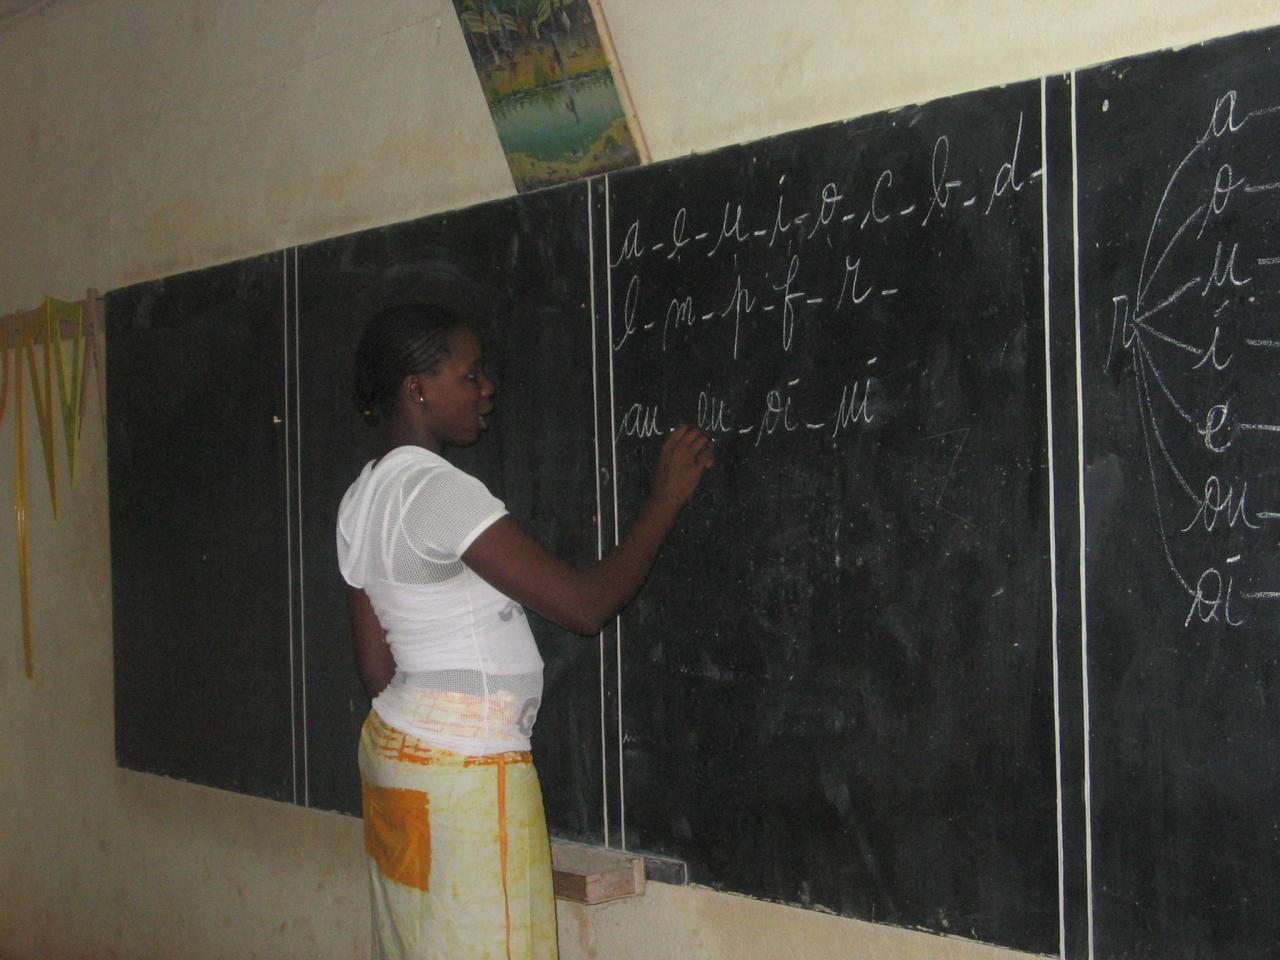 a - e - u - i - o - c - b - d -
l - m - p - f - r -
au - eu - oi - ui
r
a -
o -
u =
i -
e -
ou -
oi -